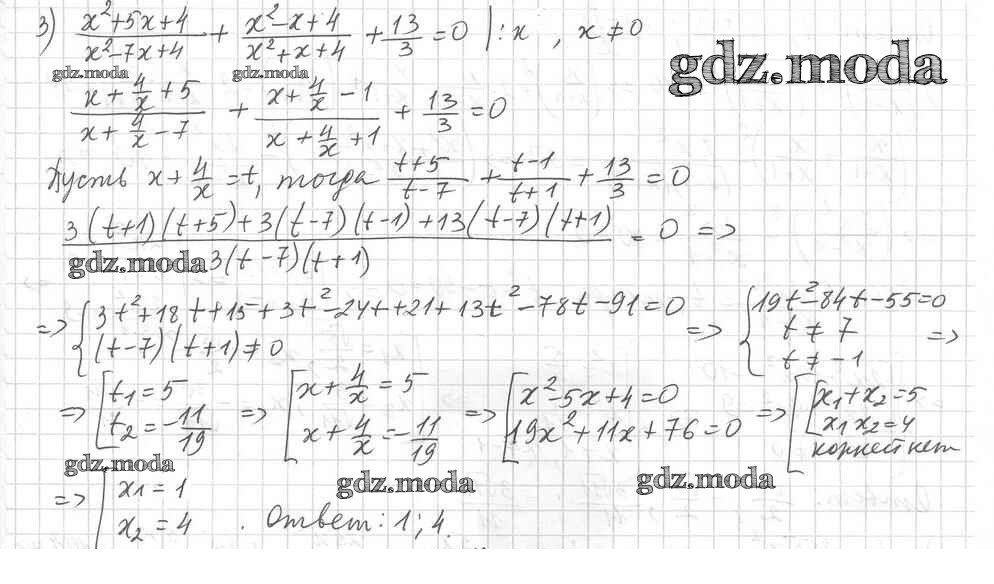 3) (x²+5x+4)/(x²-7x+4) + (x²-x+4)/(x²+x+4) + 13/3 = 0 |:x , x≠0
gdz.moda
gdz.moda
gdz.moda
(x+4/x+5)/(x+4/x-7) + (x+4/x-1)/(x+4/x+1) + 13/3 = 0
Пусть x+4/x=t, тогда (t+5)/(t-7) + (t-1)/(t+1) + 13/3 = 0
(3(t+1)(t+5)+3(t-7)(t-1)+13(t-7)(t+1))/(3(t-7)(t+1)) = 0 =>
gdz.moda
=> { 3t²+18t+15+3t²-24t+21+13t²-78t-91=0
(t-7)(t+1)≠0
=> { 19t²-84t-55=0
t≠7
t≠-1
=>
=> [ t₁=5
t₂=-11/19
=> [ x+4/x=5
x+4/x=-11/19
=> [ x²-5x+4=0
19x²+11x+76=0
=> [ { x₁+x₂=5
x₁x₂=4
корней нет
gdz.moda
gdz.moda
gdz.moda
=> [ x₁=1
x₂=4
. Ответ: 1; 4.